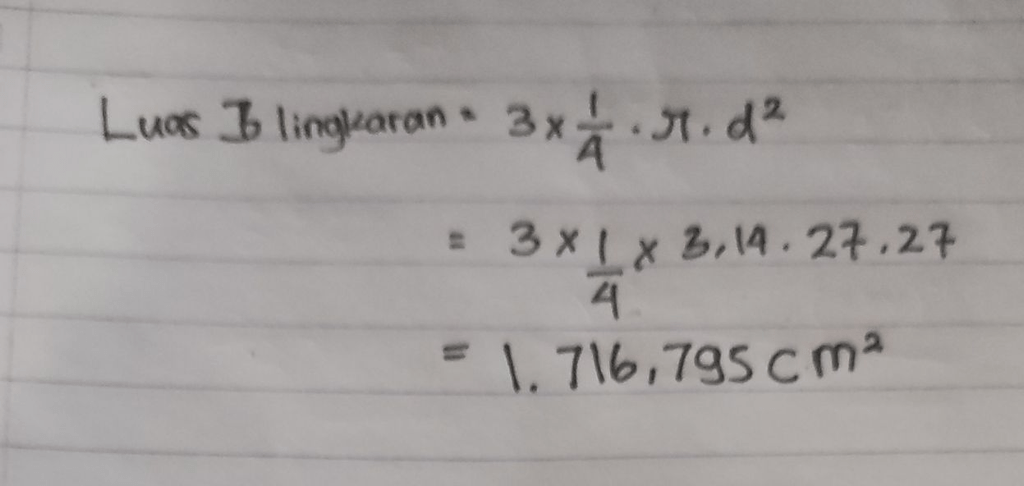 Luas 3 lingkaran = 3 × 1/4 . π . d²
= 3 × 1/4 × 3,14 . 27 . 27
= 1.716,795 cm²